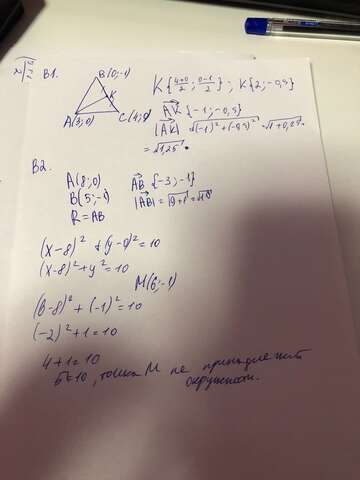 В1.
B(0;-1)
K
A(3;0)
C(4;0)
K{4+0/2; 0-1/2}; K{2;-0,5}
AK{-1;-0,5}
|AK| √(-1)²+(-0,5)² = √1+0,25
= √1,25.
В2.
A(8;0)
B(5;-1)
R=AB
AB{-3;-1}
|AB|=√9+1=√10
(x-8)²+(y-0)²=10
(x-8)²+y²=10
M(6;-1)
(6-8)²+(-1)²=10
(-2)²+1=10
4+1=10
5≠10, точка М не принадлежит
окружности.